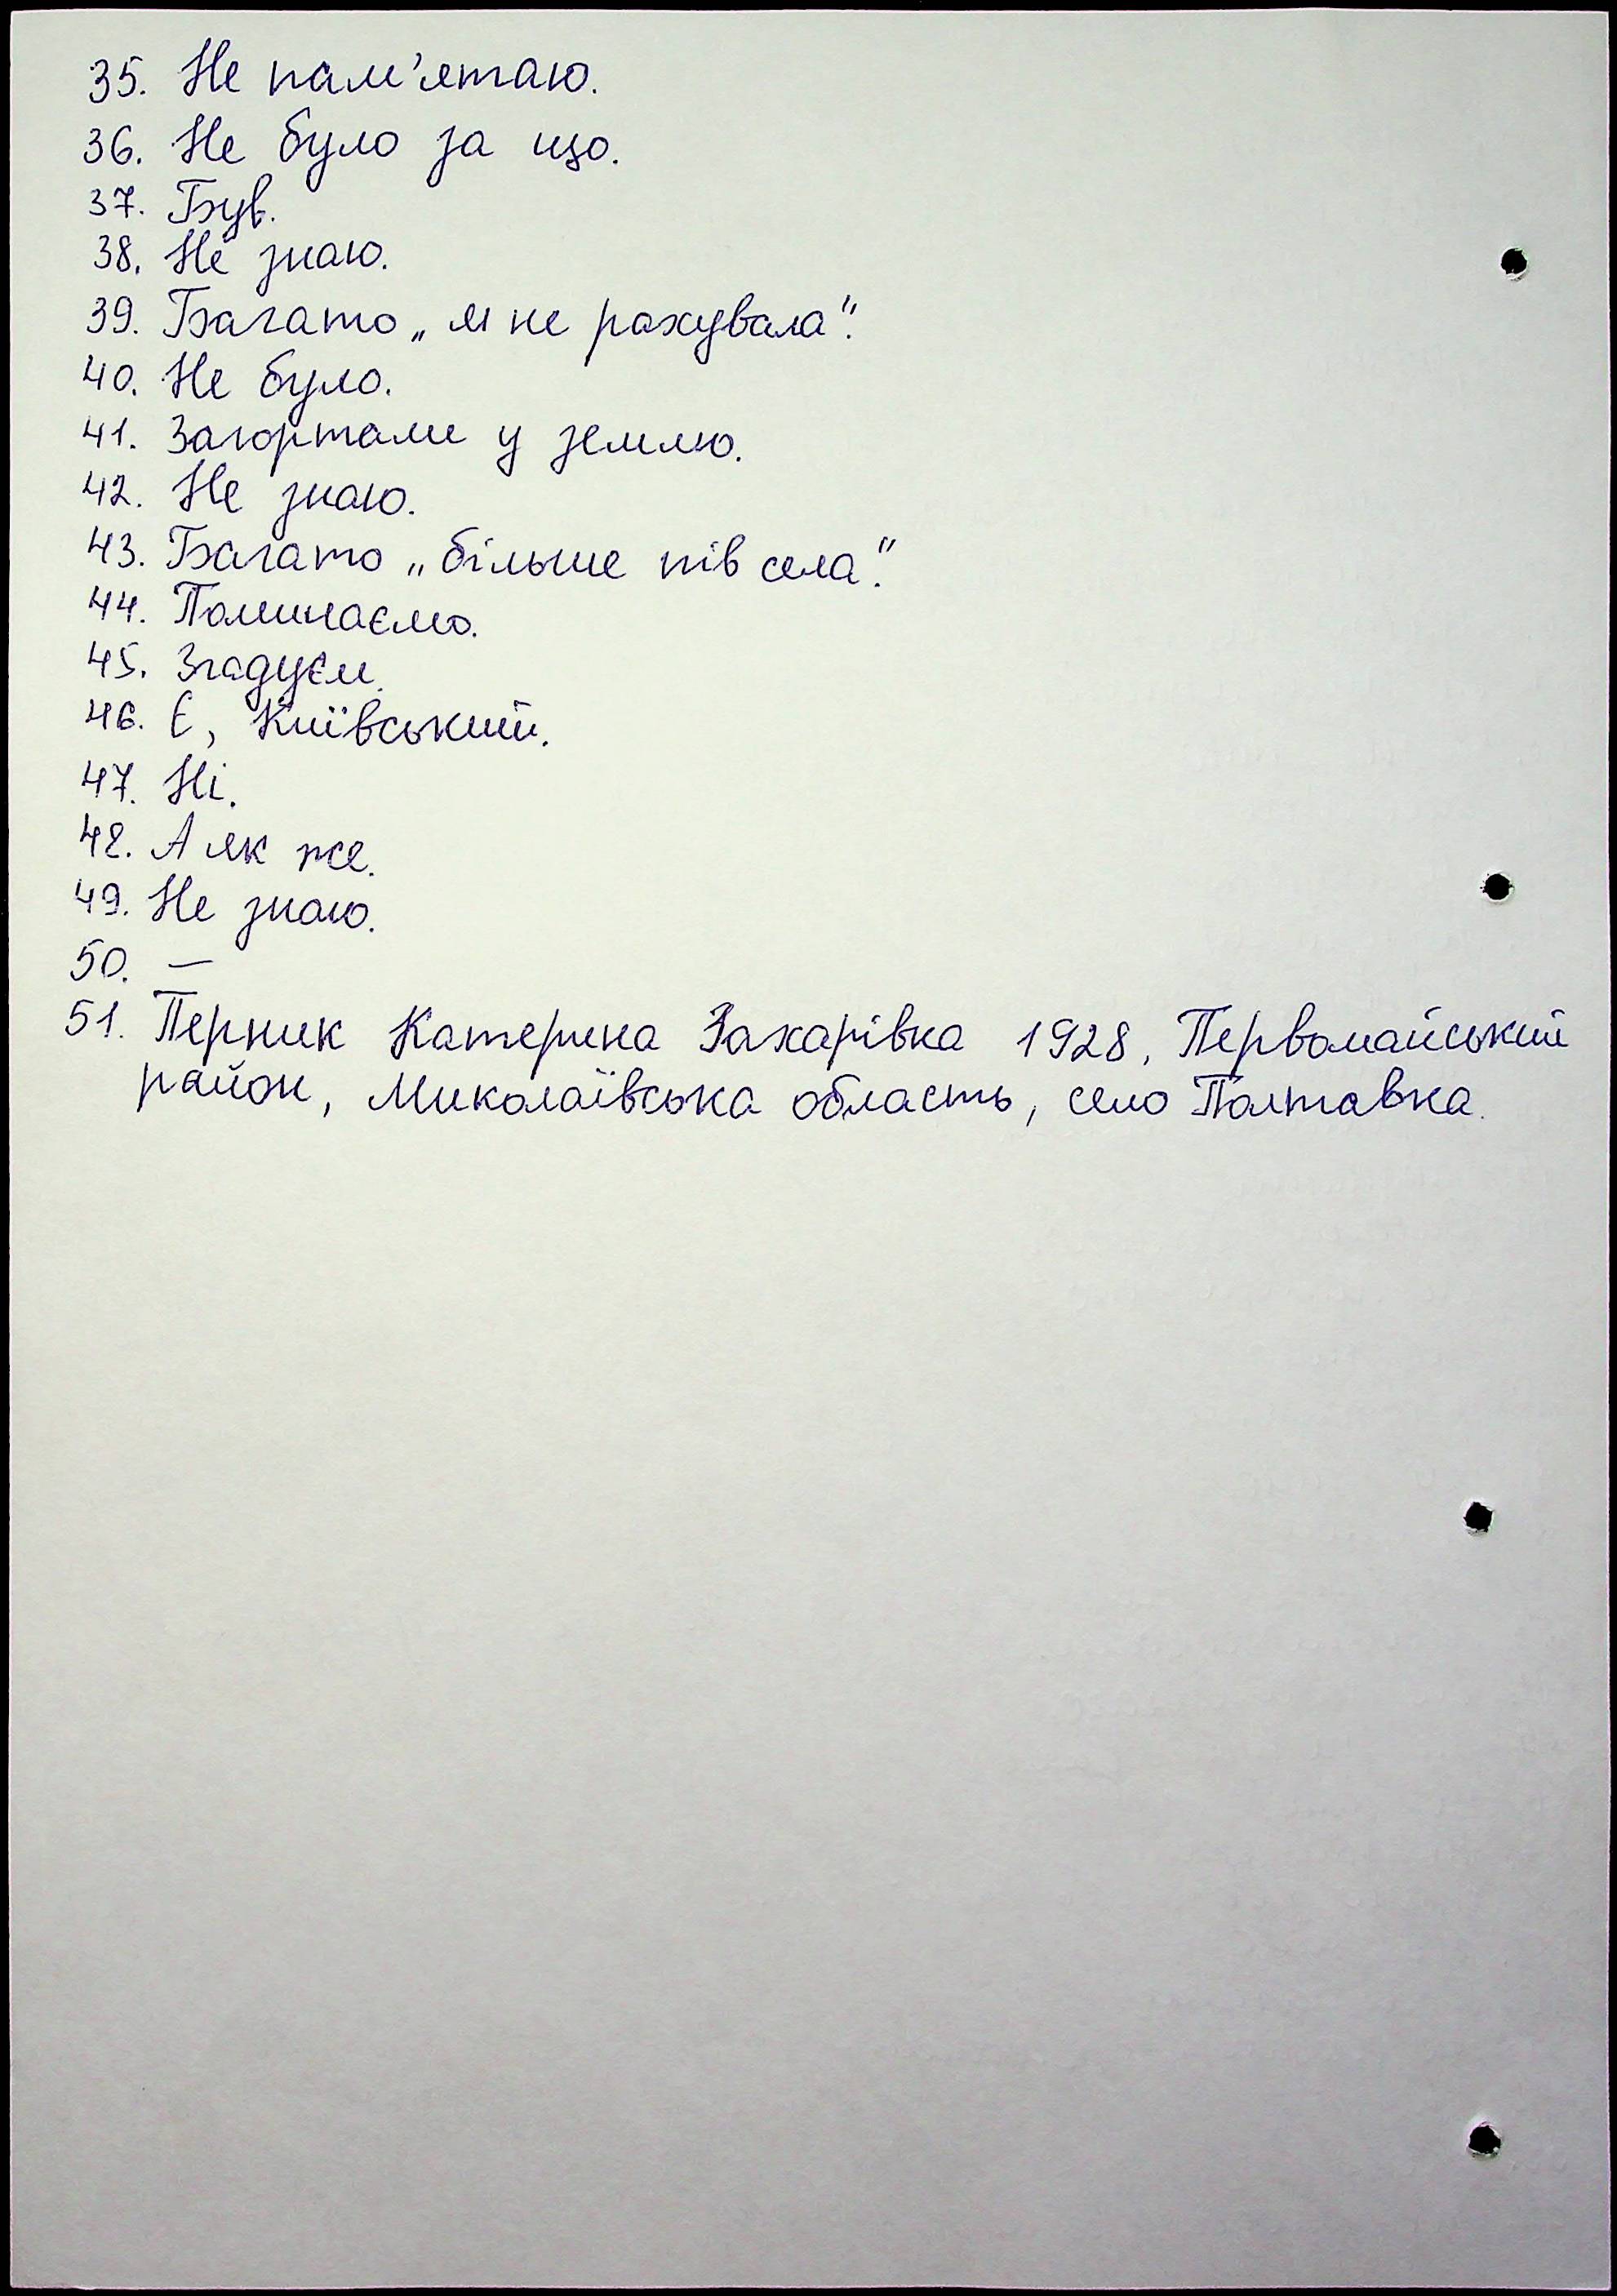 35. Не пам'ятаю.
36. Не було за що.
37. Був.
38. Не знаю.
39. Багато „я не рахувала".
40. Не було.
41. Загортали у землю.
42. Не знаю.
43. Багато „більше пів села".
44. Поминаємо.
45. Згадуєм.
46. Є, Київський.
47. Ні.
48. А як же.
49. Не знаю.
50. —
51. Перник Катерина Захарівка 1928, Первомайський
район, Миколаївська область, село Полтавка.